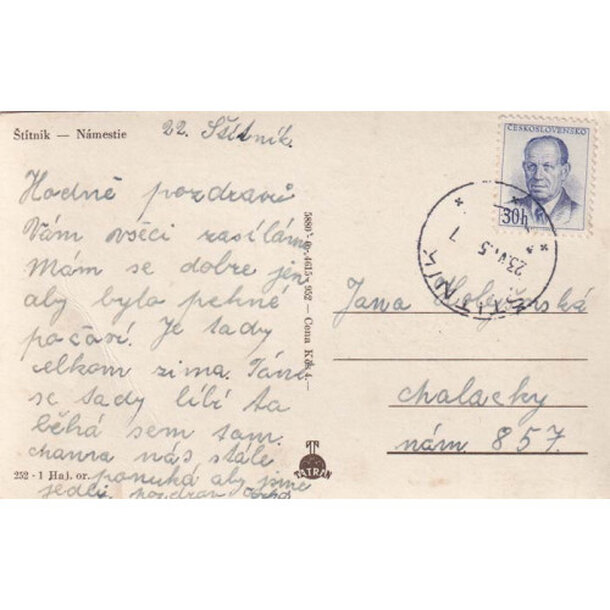 Štítnik — Námestie
22. Štítnik.
Hodně pozdravů
Vám všeci zasílám
Mám se dobre jen
aby bylo pekné
počasí. Je tady
celkom zima.
se tady líbí ta
běhá sem tam.
nás stále
ponuká aby jsme
jedli, pozdrav
252 - 1 Haj. or.
952 — Cena Kčs
TATRAN
ČESKOSLOVENSKO
30h
ŠTÍTNIK
23.V.5
7
Jana
chalacky
nám. 857.